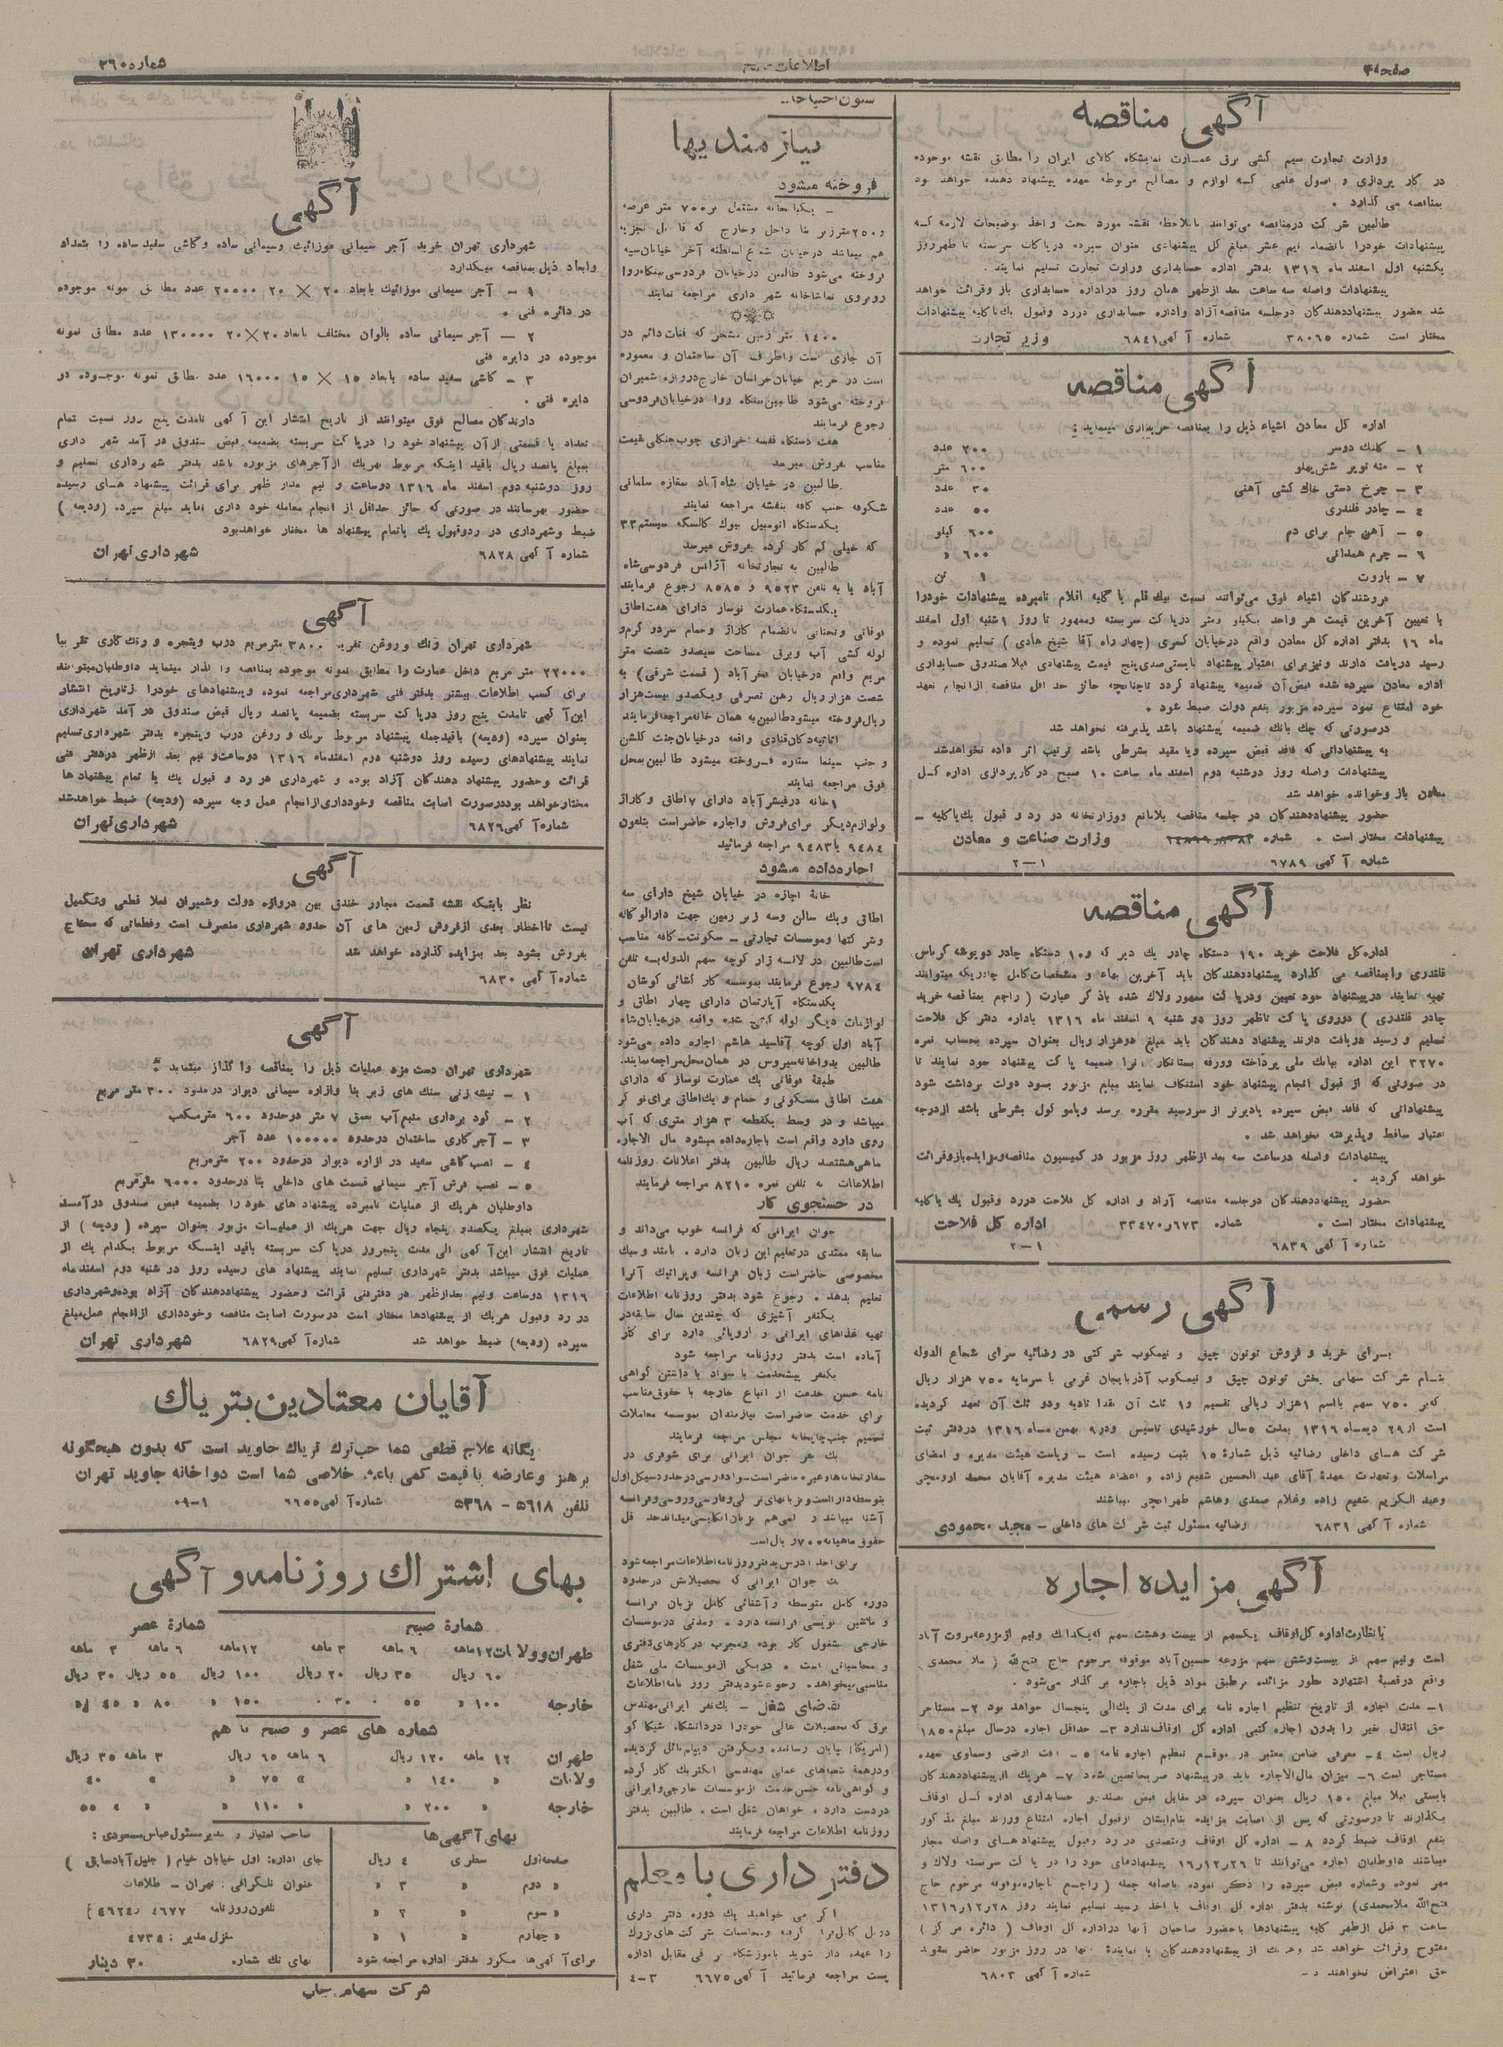 صفحه ۴
اطلاعات صبح
شماره ۳۶۰
آگهی مناقصه
وزارت تجارت سیم کشی برق عمارت نمایشگاه کالای ایران را مطابق نقشه موجوده
در کار پردازی و اصول علمی که لوازم و مصالح مربوطه بعهده پیشنهاد دهنده خواهد بود
بمناقصه می گذارد .
طالبین شرکت درمناقصه می‌توانند بملاحظه نقشه مورد بحث و اخذ توضیحات لازمه که
پیشنهادات خودرا بانضمام نیم عشر مبلغ کل پیشنهادی بعنوان سپرده درپاکات سربسته تا ظهرروز
یکشنبه اول اسفند ماه ۱۳۱۶ بدفتر اداره حسابداری وزارت تجارت تسلیم نمایند .
پیشنهادات واصله سه ساعت بعد ازظهر همان روز دراداره حسابداری باز وقرائت خواهد
شد حضور پیشنهاددهندگان درجلسه مناقصه آزاد واداره حسابداری دررد وقبول یك یا کلیه پیشنهادات
مختار است شماره ۳۸۰۶۵ شماره آگهی ۶۸۴۱ وزیر تجارت
آگهی مناقصه
اداره کل معادن اشیاء ذیل را بمناقصه خریداری مینماید :
۱ – کلنك دوسر ۲۰۰ عدد
۲ – مته توپر شش پهلو ۶۰۰ متر
۳ – چرخ دستی خاك کشی آهنی ۳۰ عدد
۴ – چادر قلندری ۵۰ عدد
۵ – آهن جام برای دم ۶۰۰ کیلو
۶ – چرم همدانی ۶۰۰ »
۷ – باروت ۱ تن
فروشندگان اشیاء فوق می‌توانند نسبت بیك قلم یا کلیه اقلام نامبرده پیشنهادات خودرا
با تعیین آخرین قیمت هر واحد یکیلو ومتر درپاکت سربسته وممهور تا روز ۱شنبه اول اسفند
ماه ۱۶ بدفتر اداره کل معادن واقع درخیابان کسری (چهار راه آقا شیخ هادی) تسلیم نموده و
رسید دریافت دارند ونیزبرای اعتبار پیشنهاد بایستی صدی پنج قیمت پیشنهادی قبلا صندوق حسابداری
اداره معادن سپرده شده قبض آن ضمیمه پیشنهاد گردد تاچنانچه حائز حد اقل مناقصه ازانجام تعهد
خود امتناع نمود سپرده مزبور بنفع دولت ضبط شود .
درصورتی که چك بانك ضمیمه پیشنهاد باشد پذیرفته نخواهد شد
به پیشنهاداتی که فاقد قبض سپرده ویا مقید بشرطی باشد ترتیب اثر داده نخواهدشد
پیشنهادات واصله روز دوشنبه دوم اسفند ماه ساعت ۱۰ صبح درکارپردازی اداره کل
معادن باز وخوانده خواهد شد
حضور پیشنهاددهندگان در جلسه مناقصه بلامانع ووزارتخانه در رد و قبول یك یا کلیه –
پیشنهادات مختار است . شماره وزارت صناعت و معادن
شماره آگهی ۶۷۸۹ ۱–۲
آگهی مناقصه
اداره کل فلاحت خرید ۱۹۰ دستگاه چادر یك دیرکه و۱۰ دستگاه چادر دوپوشه کرباس
قلندری رابمناقصه می گذارد پیشنهاددهندگان باید آخرین بهاء و مشخصات کامل چادریکه میتوانند
تهیه نمایند درپیشنهاد خود تعیین ودرپاکت ممهور ولاك شده باذکر عبارت (راجع بمناقصه خرید
چادر قلندری) درروی پاکت تاظهر روز دو شنبه ۹ اسفند ماه ۱۳۱۶ باداره دفتر کل فلاحت
تسلیم و رسید دریافت دارند پیشنهاد دهندگان باید مبلغ دوهزار ریال بعنوان سپرده بحساب نمره
۳۲۷۰ این اداره ببانك ملی پرداخته وورقه بستانکار آنرا ضمیمه پاکت پیشنهاد خود نمایند تا
در صورتی که از قبول انجام پیشنهاد خود استنکاف نمایند مبلغ مزبور بسود دولت برداشت شود
پیشنهاداتی که فاقد قبض سپرده یادیرتر از سررسید مقرره برسد ویامو کول بشرطی باشد ازدرجه
اعتبار ساقط وپذیرفته نخواهد شد .
پیشنهادات واصله درساعت سه بعد ازظهر روز مزبور در کمیسیون مناقصه ومزایده بازوقرائت
خواهد گردید .
حضور پیشنهاددهندگان درجلسه مناقصه آزاد و اداره کل فلاحت دررد وقبول یك یاکلیه
پیشنهادات مختار است . شماره ۶۷۳ر۳۳۴۷۰ اداره کل فلاحت
شماره آگهی ۶۸۳۹ ۱–۲
آگهی رسمی
برای خرید و فروش توتون چپق و تیمکوب شرکتی در رضائیه سرای شجاع الدوله
بنام شرکت سهامی پخش توتون چپق و تیمکوب آذربایجان غربی با سرمایه ۷۵۰ هزار ریال
که‌بر ۷۵۰ سهم بااسم ۱هزار ریالی تقسیم و۱ ثلث آن نقدا تادیه ودو ثلث آن تعهد گردیده
است از۲۹ دیماه ۱۳۱۶ بمدت ۵سال خورشیدی تاسیس ودر۹ بهمن ماه ۱۳۱۶ دردفتر ثبت
شرکت های داخلی رضائیه ذیل شمارهٔ ۱۵ ثبت رسیده است – ریاست هیئت مدیره و امضای
مراسلات وتعهدات بعهدهٔ آقای عبدالحسین شفیع زاده و اعضاء هیئت مدیره آقایان محمد ارومچی
وعبدالکریم شفیع زاده وغلام صمدی وهاشم طهرانچی میباشند
شماره آگهی ۶۸۳۱ رضائیه مسئول ثبت شرکت های داخلی – مجید محمودی
آگهی مزایده اجاره
بانظارت اداره کل اوقاف یکسهم از بیست وهشت سهم که‌یکدانك ونیم ازمزرعه‌مروت آباد
است ونیم سهم از بیست‌وشش سهم مزرعه حسین‌آباد موقوفه مرحوم حاج فتح‌الله (ملا محمدی)
واقع درقصبهٔ اشتهارد بطور مزائده برطبق مواد ذیل باجاره بر گذار می‌شود.
۱– مدت اجاره از تاریخ تنظیم اجاره نامه برای مدت از یك‌الی پنجسال خواهد بود ۲– مستاجر
حق انتقال بغیر را بدون اجازه کتبی اداره کل اوقاف‌ندارد ۳– حداقل اجاره درسال مبلغ ۱۸۵۰
ریال است ۴– معرفی ضامن معتبر در موقع تنظیم اجاره نامه ۵– آفت ارضی وسماوی بعهده
مستاجر است ۶– میزان مال‌الاجاره باید درپیشنهاد صریحاتعیین شود ۷– هریك از پیشنهاددهندگان
بایستی قبلا مبلغ ۱۵۰ ریال بعنوان سپرده در مقابل قبض بصندوق حسابداری اداره کل اوقاف
بگذارند تا درصورتی که پس از اصابت مزایده بنام‌ایشان ازقبول اجاره امتناع ورزند مبلغ مذکور
بنفع اوقاف ضبط گردد ۸– اداره کل اوقاف ومتصدی در رد وقبول پیشنهادهای واصله مجاز
میباشند داوطلبان اجاره می‌توانند تا ۲۶ر۱۲ر۱۶ پیشنهادهای خود را در پاکت سربسته ولاك و
مهر نموده وشماره قبض سپرده را ذکر نموده باضافه جمله (راجع باجاره‌موقوفه مرحوم حاج
فتح‌الله ملامحمدی) نوشته بدفتر اداره کل اوقاف با اخذ رسید تسلیم نمایند روز ۲۸ر۱۲ر۱۳۱۶
ساعت ۳ قبل ازظهر کلیه پیشنهادها باحضور صاحبان آنها دراداره کل اوقاف (دائره مرکز)
مفتوح وقرائت خواهد شد از پیشنهاددهندگان یا نمایندهٔ آنها در روز مزبور حاضر نشوند
حق اعتراض نخواهند
شماره آگهی ۶۸۰۳
ستون احتیاجات
نیازمندیها
فروخته میشود
– یکباب‌خانه مشتمل بر۷۰۰ متر عرصه
و۲۵۰مترزیر بنا داخل وخارج که قابل تجزیه
هم میباشد درخیابان شعاع‌السلطنه آخر خیابان‌سپه
فروخته می‌شود طالبین درخیابان فردوسی‌بنگاه‌روا
روبروی تماشاخانه شهرداری مراجعه نمایند
۱۴۰۰ متر زمین مشجر که قنات دائم در
آن جاری است واطراف آن ساختمان و معموره
است در حریم خیابان‌خراسان خارج‌دروازه شمیران
فروخته می‌شود طالبین‌ببنگاه روا درخیابان‌فردوسی
رجوع فرمایند
هفت دستگاه قفسه خرازی چوب‌جنگلی‌بقیمت
مناسب بفروش میرسد
طالبین در خیابان شاه‌آباد مغازه سلمانی
شکوفه جنب کافه بنفشه مراجعه نمایند
یکدستگاه اتومبیل بیوك کالسکه سیستم۳۳
که خیلی کم کار کرده بفروش میرسد
طالبین به تجارتخانه آژانس فردوسی‌شاه
آباد یا به تلفن ۹۵۲۳ و ۸۵۸۵ رجوع فرمایند
یکدستگاه عمارت نوساز دارای هفت‌اطاق
فوقانی وتحتانی بانضمام گاراژ وحمام سردو گرم‌و
لوله کشی آب وبرق مساحت سیصدو شصت متر
مربع واقع درخیابان فخرآباد (قسمت شرقی) به
شصت هزارریال رهن تصرفی ویکصدو بیست‌هزار
ریال فروخته میشودطالبین‌به همان خانه‌مراجعه‌فرمایند
اثاثیه‌دکان‌قنادی واقعه درخیابان‌جنت گلشن
و جنب سینما ستاره فروخته میشود طالبین‌بمحل
فوق مراجعه نمایند
۱خانه درقیشرآباد دارای ۷اطاق و گاراژ
ولوازم‌دیگر برای‌فروش واجاره حاضراست بتلفون
۹۴۸۴ یا ۹۴۸۳ مراجعه فرمائید
اجاره‌داده میشود
خانهٔ اجاره در خیابان شیخ دارای سه
اطاق ویك سالن وسه زیرزمین جهت دارالوکاله
وشرکتها وموسسات تجارتی – سکونت–کافه مناسب
است‌طالبین در لاله‌زار کوچه سهم الدوله‌به تلفن
۹۷۸۴ رجوع فرمایند بموسسه کارگشائی کوشان
یکدستگاه آپارتمان دارای چهار اطاق و
لوازمات دیگر لوله کشی شده واقعه درخیابان‌شاه
آباد اول کوچه آقاسید هاشم اجاره داده می‌شود
طالبین بدواخانه‌سیروس در همان‌محل‌مراجعه‌نمایند.
طبقهٔ فوقانی یك عمارت نوساز که دارای
هفت اطاق مسکونی و حمام و یك‌اطاق برای‌نوکر
میباشد و در وسط یکقطعه ۳ هزار متری که آب
روی دارد واقع است باجاره‌داده میشود مال الاجاره
ماهی‌هشتصد ریال طالبین بدفتر اعلانات روزنامه
اطلاعات به تلفن نمره ۸۲۱۰ مراجعه فرمایند
در جستجوی کار
جوان ایرانی که فرانسه خوب می‌داند و
سابقه ممتدی درتعلیم این زبان دارد . بامتد وسبك
مخصوصی حاضراست زبان فرانسه وپراتیك آنرا
تعلیم بدهد . رجوع شود بدفتر روزنامه اطلاعات
یکنفر آشپزی که چندین سال سابقه‌در
تهیه غذاهای ایرانی و اروپائی دارد برای کار
آماده است بدفتر روزنامه مراجعه شود
یکنفر پیشخدمت با سواد با داشتن گواهی
نامه حسن خدمت از اتباع خارجه با حقوق‌مناسب
برای خدمت حاضراست نیازمندان بموسسه معاملات
تصمیم جنب‌چاپخانه مجلس مراجعه فرمایند
یك نفر جوان ایرانی برای شوفری در
سفارتخانه‌هاوغیره حاضراست–سوادفارسی درحدودسیکل اول
آشنا میباشد
حقوق ماهیانه۷۰۰ریال‌است
برای اخذ آدرس بدفتر روزنامه اطلاعات‌مراجعه‌شود
یك جوان ایرانی که تحصیلاتش درحدود
دوره کامل متوسطه وآشنائی کامل بزبان فرانسه
و ماشین نویسی فرانسه دارد . ومدتی درموسسات
خارجی مشغول کار بوده ومجرب درکارهای‌دفتری
و محاسباتی است . دریکی ازموسسات ملی شغل
مناسبی‌میخواهد. رجوع‌شودبدفتر روزنامه‌اطلاعات
تقاضای شغل – یك‌نفر ایرانی‌مهندس
برق که تحصیلات عالی خودرا دردانشگاه شیکاگو
(امریکا) بپایان رسانده وبگرفتن دیپلم نائل گردیده
ودرهمهٔ شعبه‌های عملی مهندسی الکتریك کار کرده
و گواهی‌نامه حسن‌خدمت ازموسسات خارجی‌وایرانی
دردست دارد، خواهان شغل است . طالبین بدفتر
روزنامه اطلاعات مراجعه فرمایند
دفترداری با معلم
اگر می خواهید یك دوره دفتر داری
دوبل کامل‌را گرفته ومحاسبات شرکت‌های‌بزرك
را عهده دار شوید باموزشگاه در مقابل اداره
پست مراجعه فرمائید آگهی ۶۶۷۵ ۳–۴
آگهی
شهرداری تهران خرید آجر سیمانی موزائیك وسیمانی ساده وکاشی سفید ساده را بتعداد
وابعاد ذیل بمناقصه میگذارد
۱ – آجر سیمانی موزائیك بابعاد ۲۰ × ۲۰ ۲۰۰۰۰ عدد مطابق نمونه موجوده
در دائره فنی .
۲ – آجر سیمانی ساده بالوان مختلف بابعاد ۲۰×۲۰ ۱۳۰۰۰۰ عدد مطابق نمونه
موجوده در دایره فنی
۳ – کاشی سفید ساده بابعاد ۱۵ × ۱۵ ۱۶۰۰۰ عدد مطابق نمونه موجوده در
دایره فنی .
دارندگان مصالح فوق میتوانند از تاریخ انتشار این آگهی تامدت پنج روز نسبت تمام
تعداد یا قسمتی ازآن پیشنهاد خود را درپاکت سربسته بضمیمه قبض صندوق در آمد شهرداری
بمبلغ پانصد ریال باقید اینکه مربوط بهریك ازآجرهای مزبوره باشد بدفتر شهرداری تسلیم و
روز دوشنبه دوم اسفند ماه ۱۳۱۶ دوساعت و نیم بعداز ظهر برای قرائت پیشنهادهای رسیده
حضور بهرسانند در صورتی که حائز حداقل از انجام معامله خود داری نماید مبلغ سپرده. (ودیعه)
ضبط وشهرداری در ردوقبول یك یاتمام پیشنهاد ها مختار خواهدبود
شماره آگهی ۶۸۲۸ شهرداری تهران
آگهی
شهرداری تهران رنك وروغن تقریبا ۳۸۰۰ مترمربع درب وپنجره و رنك‌کاری تقریبا
۲۲۰۰۰ متر مربع داخل عمارت را مطابق نمونه موجوده بمناقصه واگذار مینماید داوطلبان‌میتوانند
برای کسب اطلاعات بیشتر بدفتر فنی شهرداری‌مراجعه نموده وپیشنهادهای خودرا ازتاریخ انتشار
این‌آگهی تامدت پنج روز درپاکت سربسته بضمیمه پانصد ریال قبض صندوق در آمد شهرداری
بعنوان سپرده (ودیعه) باقیدجمله پیشنهاد مربوط برنك و روغن درب وپنجره بدفتر شهرداری‌تسلیم
نمایند پیشنهادهای رسیده روز دوشنبه دوم اسفندماه ۱۳۱۶ دوساعت‌و نیم بعد ازظهر دردفتر فنی
قرائت وحضور پیشنهاد دهندگان آزاد بوده و شهرداری در رد و قبول یك یا تمام پیشنهادها
مختارخواهد بوددرصورت اصابت مناقصه وخودداری‌ازانجام عمل وجه سپرده (ودیعه) ضبط خواهدشد
شماره‌آگهی ۶۸۲۶ شهرداری‌تهران
آگهی
نظر باینکه نقشه قسمت مجاور خندق بین دروازه دولت وشمیران فعلا قطعی وتکمیل
نیست تااخطار بعدی ازفروش زمین های آن حدود شهرداری منصرف است وقطعاتی که محتاج
بفروش بشود بعد بمزایده گذارده خواهد شد شهرداری تهران
شماره آگهی ۶۸۳۰
آگهی
شهرداری تهران دست مزد عملیات ذیل را بمناقصه واگذار مینماید :
۱ – تیشه زنی سنك های زیر بنا وازاره سیمانی دیوار درحدود ۳۰۰ متر مربع
۲ – گود برداری منبع‌آب بعمق ۷ متر درحدود ۶۰۰ مترمکعب
۳ – آجرکاری ساختمان درحدود ۱۰۰۰۰۰ عدد آجر
۴ – نصب‌کاشی سفید در ازاره دیوار درحدود ۲۰۰ مترمربع
۵ – نصب فرش آجر سیمانی قسمت های داخلی بنا درحدود ۶۰۰۰ مترمربع
داوطلبان هریك از عملیات نامبرده پیشنهاد های خود را بضمیمه قبض صندوق درآمد
شهرداری بمبلغ یکصدو پنجاه ریال جهت هریك از عملیات مزبور بعنوان سپرده (ودیعه) از
تاریخ انتشار این‌آگهی الی مدت پنجروز درپاکت سربسته باقید اینکه مربوط بکدام یك از
عملیات فوق میباشد بدفتر شهرداری تسلیم نمایند پیشنهاد های رسیده روز دو شنبه دوم اسفندماه
۱۳۱۶ دوساعت ونیم بعدازظهر در دفترفنی قرائت وحضور پیشنهاددهندگان آزاد بوده‌وشهرداری
در رد وقبول هریك از پیشنهادها مختار است درصورت اصابت مناقصه وخودداری ازانجام عمل‌مبلغ
سپرده (ودیعه) ضبط خواهد شد شماره‌آگهی ۶۸۲۹ شهرداری تهران
آقایان معتادین بتریاك
یگانه علاج قطعی شما حب‌ترك تریاك جاوید است که بدون هیچگونه
پرهیز وعارضه باقیمت کمی باعث خلاصی شما است دواخانه جاوید تهران
تلفن ۵۶۱۸ – ۵۳۶۸ شماره آگهی ۶۶۵۵
بهای اشتراك روزنامه و آگهی
شمارهٔ صبح شمارهٔ عصر
طهران‌وولایات ۱۲ماهه ۶ ماهه ۳ ماهه ۱۲ماهه ۶ ماهه ۳ ماهه
۶۰ ریال ۳۵ ریال ۲۰ ریال ۱۰۰ ریال ۵۵ ریال ۳۰ ریال
خارجه ۱۰۰ » ۵۵ » ۳۰ » ۱۵۰ » ۸۰ » ۴۵ »
شماره های عصر و صبح با هم
طهران ۱۲ ماهه ۱۲۰ ریال ۶ ماهه ۶۵ ریال ۳ ماهه ۳۵ ریال
ولایات » ۱۴۰ » » ۷۵ » » ۴۰
خارجه » ۲۰۰ » » ۱۱۰ » » ۵۵
بهای آگهی‌ها
صفحه‌اول سطری ۴ ریال
» دوم » ۳ »
» سوم » ۲ »
» چهارم » ۱ »
برای آگهی‌ها مکرر بدفتر اداره مراجعه شود
صاحب امتیاز و مدیرمسئول‌عباس‌مسعودی :
جای اداره: اول خیابان خیام (جلیل‌آبادسابق)
عنوان تلگرافی : تهران – اطلاعات
تلفون‌روزنامه ۴۶۷۷ و ۴۶۲۴
منزل مدیر : ۴۷۳۴
بهای تك شماره ۳۰ دینار
شرکت سهامی چاپ